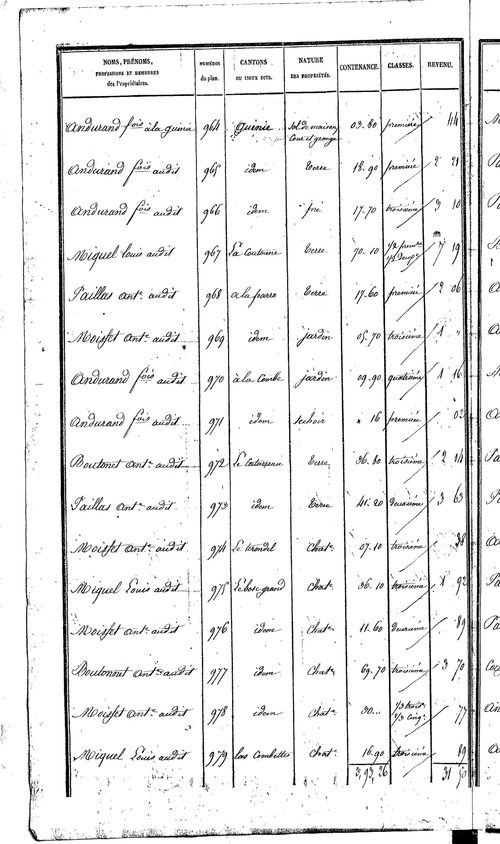 NOMS, PRÉNOMS, PROFESSIONS ET DEMEURES des Propriétaires. NUMÉROS du plan. CANTONS OU LIEUX DITS. NATURE DES PROPRIÉTÉS. CONTENANCE. CLASSES. REVENU.
Andurand fois à la guinie 964 Guinie sol de maison, Cour et grange 03.80 première 44
Andurand fois audit 965 idem Terre 18.90 première 2 21
Andurand fois audit 966 idem pré 17.70 troisième 3 10
Miquel Louis audit 967 Terre 70.10 7 19
Paillas ant.e audit 968 Terre 17.60 première 2 06
Moisset ant.e audit 969 idem jardin 05.70 troisième 1 "
Andurand fois audit 970 à la Combe jardin 09.90 quatrième 1 16
Andurand fois audit 971 idem sechoir " 16 première 02
Boutonet ant.e audit 972 Terre 36.80 troisième 2 14
Paillas ant.e audit 973 idem Terre 41.20 deuxième 3 63
Moisset ant.e audit 974 Chat.e 07.10 troisième 38
Miquel Louis audit 975 Le bosc grand Chat.e 36.10 troisième 1 92
Moisset ant.e audit 976 idem Chat.e 11.60 deuxième 89
Boutonnet ant.e audit 977 idem Chat.e 69.70 troisième 3 70
Moisset ant.e audit 978 idem Chat.e 30... 77
Miquel Louis audit 979 las Combettes Chat.e 16.90 troisième 89
3,93,26 31 50